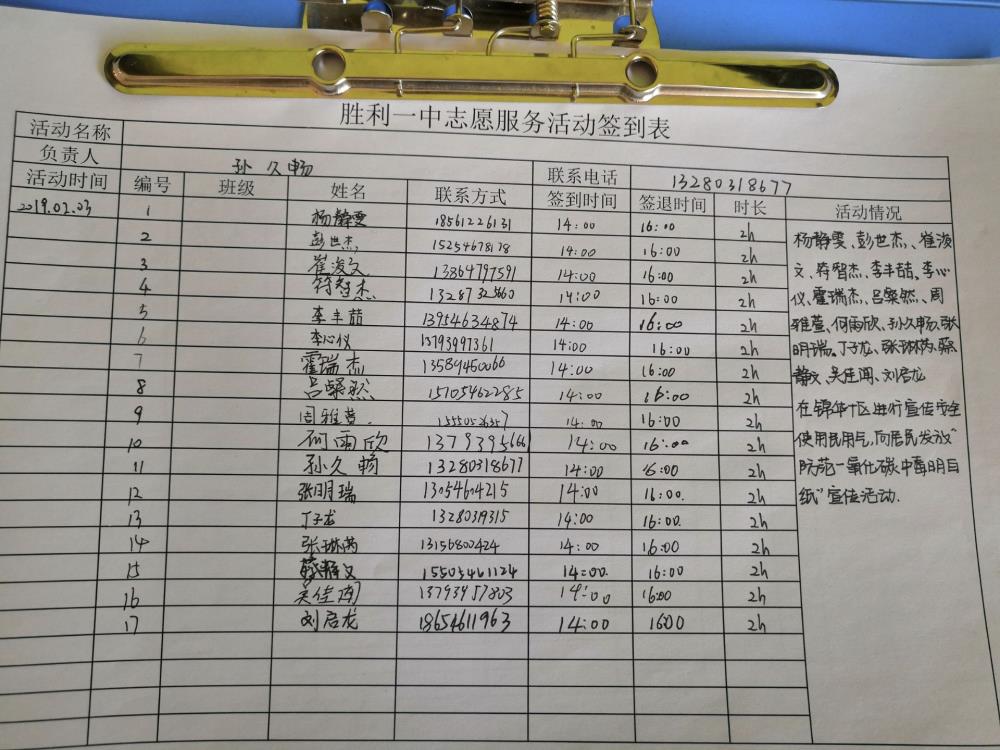 胜利一中志愿服务活动签到表
活动名称
负责人 孙久畅 联系电话 13280318677
活动时间 编号 班级 姓名 联系方式 签到时间 签退时间 时长 活动情况
2019.02.03 1 杨静雯 18561226131 14:00 16:00 2h
2 彭世杰 15254678178 14:00 16:00 2h
3 崔浚文 13864797591 14:00 16:00 2h
4 符智杰 14:00 16:00 2h
5 李丰喆 13954634874 14:00 16:00 2h
6 李心仪 13793997361 14:00 16:00 2h
7 霍瑞杰 13589460066 14:00 16:00 2h
8 吕燊然 15705462285 14:00 16:00 2h
9 周雅萱 14:00 16:00 2h
10 何雨欣 14:00 16:00 2h
11 孙久畅 13280318677 14:00 16:00 2h
12 张明瑞 13054604215 14:00 16:00. 2h
13 丁子龙 1328039315 14:00 16:00. 2h
14 张琳芮 13156800424 14:00 16:00 2h
15 蔡静文 15503461124 14:00. 16:00 2h
16 吴佳闻 13793457803 14:00 16:00 2h
17 刘启龙 18654611963 14:00 16:00 2h
杨静雯、彭世杰、崔浚
文、符智杰、李丰喆、李心
仪、霍瑞杰、吕燊然、周
雅萱、何雨欣、孙久畅、张
明瑞、丁子龙、张琳芮、蔡
静文、吴佳闻、刘启龙
在锦华十区进行宣传安全
使用民用气,向居民发放“
防范一氧化碳中毒明白
纸”宣传活动.